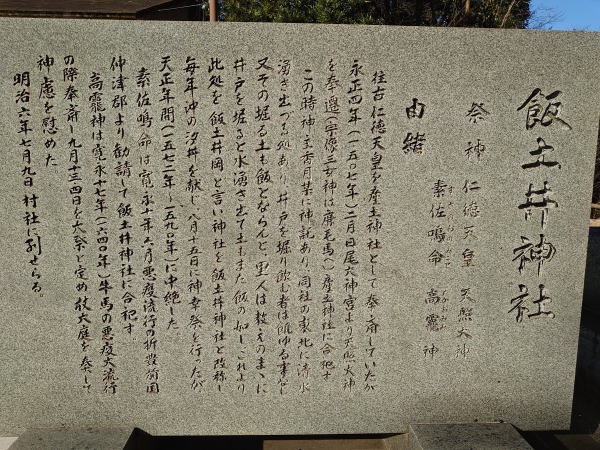 飯土井神社
祭神 仁徳天皇 天照大神
素佐鳴命 高龗神
すさのおのみこと たかおかみ
由緒
往古仁徳天皇を産土神社として奉斎していたが
永正四年(一五〇七年)二月 日尾大神宮より天照大神
を奉遷(宗像三女神は鹿毛馬へ)産土神社に合祀す
この時神主香月某に神託あり、同社の東北に清水
湧き出づる処あり、井戸を掘り飲む者は飢ゆる事なし
又その掘る土も飯とならんと、里人は教えのまゝに
井戸を掘ると水湧き出て土もまた飯の如し、これより
此処を飯土井岡と言い神社を飯土井神社と改称し
毎年沖の汐井を献じ八月十五日に神幸祭を行ったが
天正年間(一五七二年〜一五九〇年)に中絶した。
素佐鳴命は寛永十年六月悪疫流行の折豊前国
仲津郡より勧請して飯土井神社に合祀す
高龗神は寛永十七年(一六四〇年)牛馬の悪疫大流行
の際奉斎し九月十三四日を大祭と定め 庭を奏して
神慮を慰めた
明治六年七月九日 村社に列せらる。